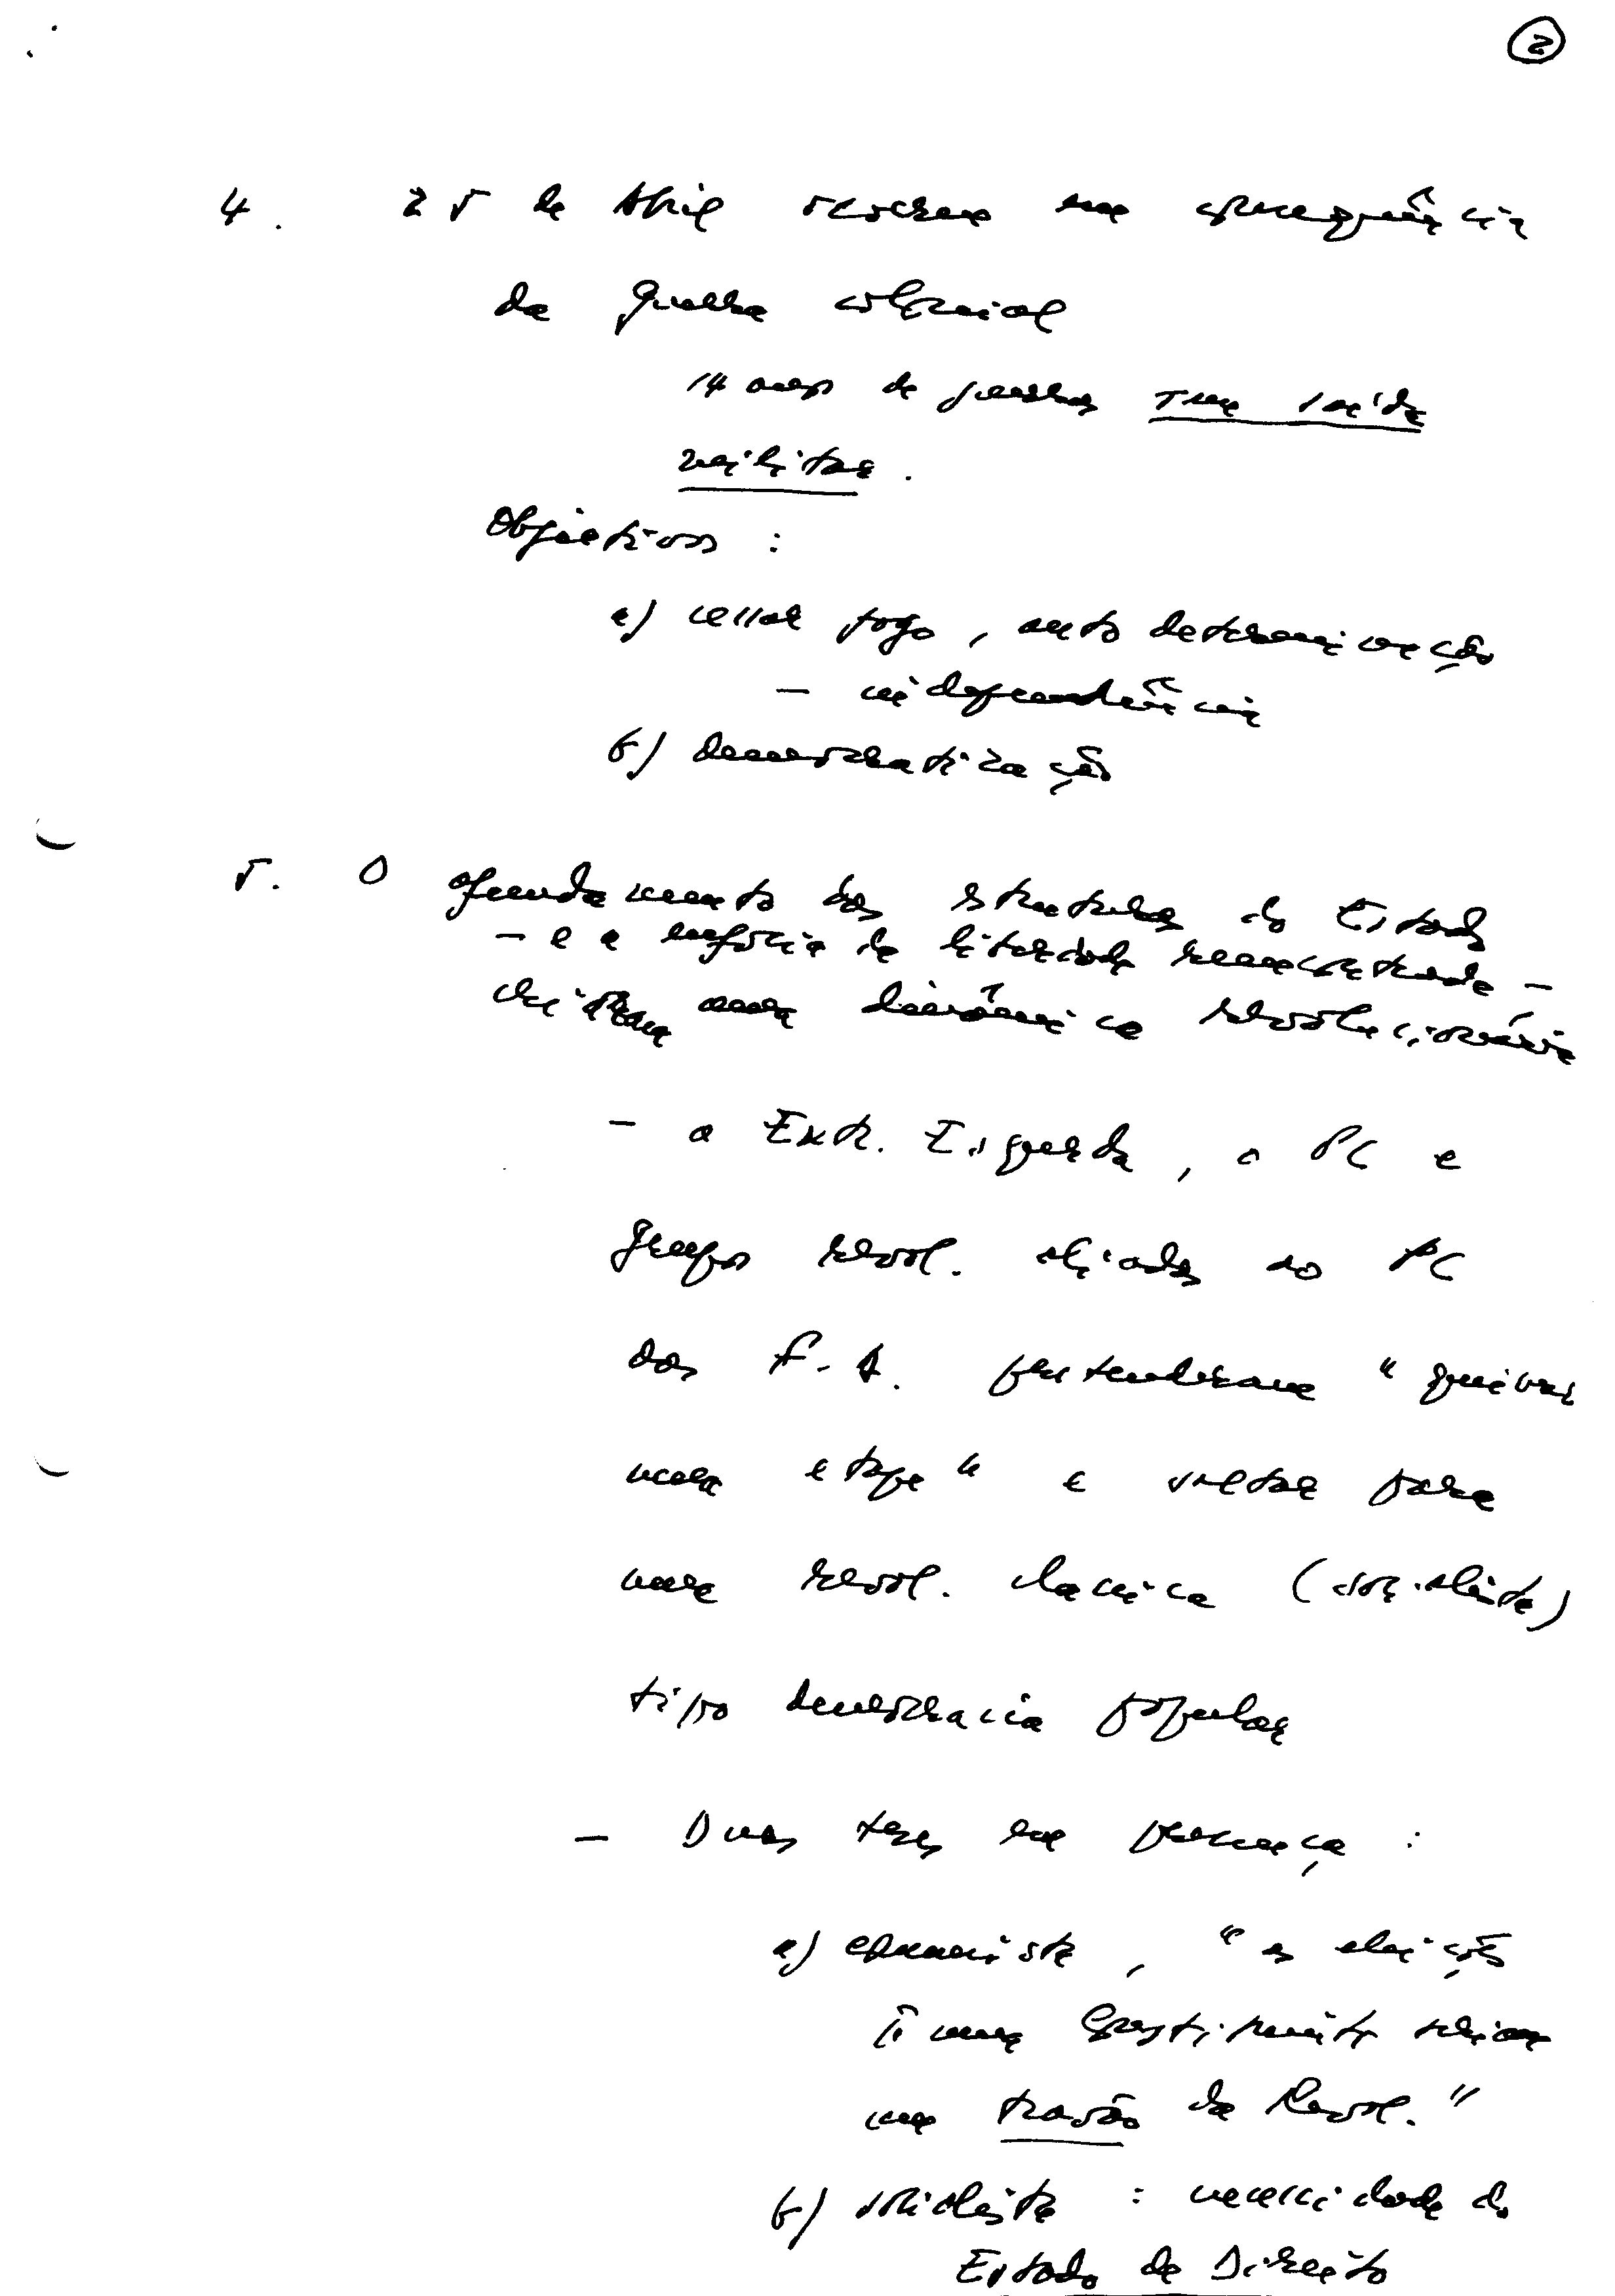 2
4. 25 de Abril ocorreu em consequência
da guerra colonial
14 anos de guerra sem saída
militar.
Objectivos:
a) cessar fogo, auto determinação
- independência
b) democratização
5. O afundamento das estruturas do Estado
- e a euforia da liberdade reencontrada -
criaram uma dinâmica revolucionária
- a Extr. Esquerda, o PC e
grupos revol. aliados ao PC
das F.A. pretenderam "queimar
uma etapa" e saltar para
uma revol. clássica (socialista)
tipo democracia popular
- Duas teses em presença:
a) comunista, "as eleições
p. uma Constituinte seriam
um travão da Revol."
b) socialista: necessidade do
Estado de Direito